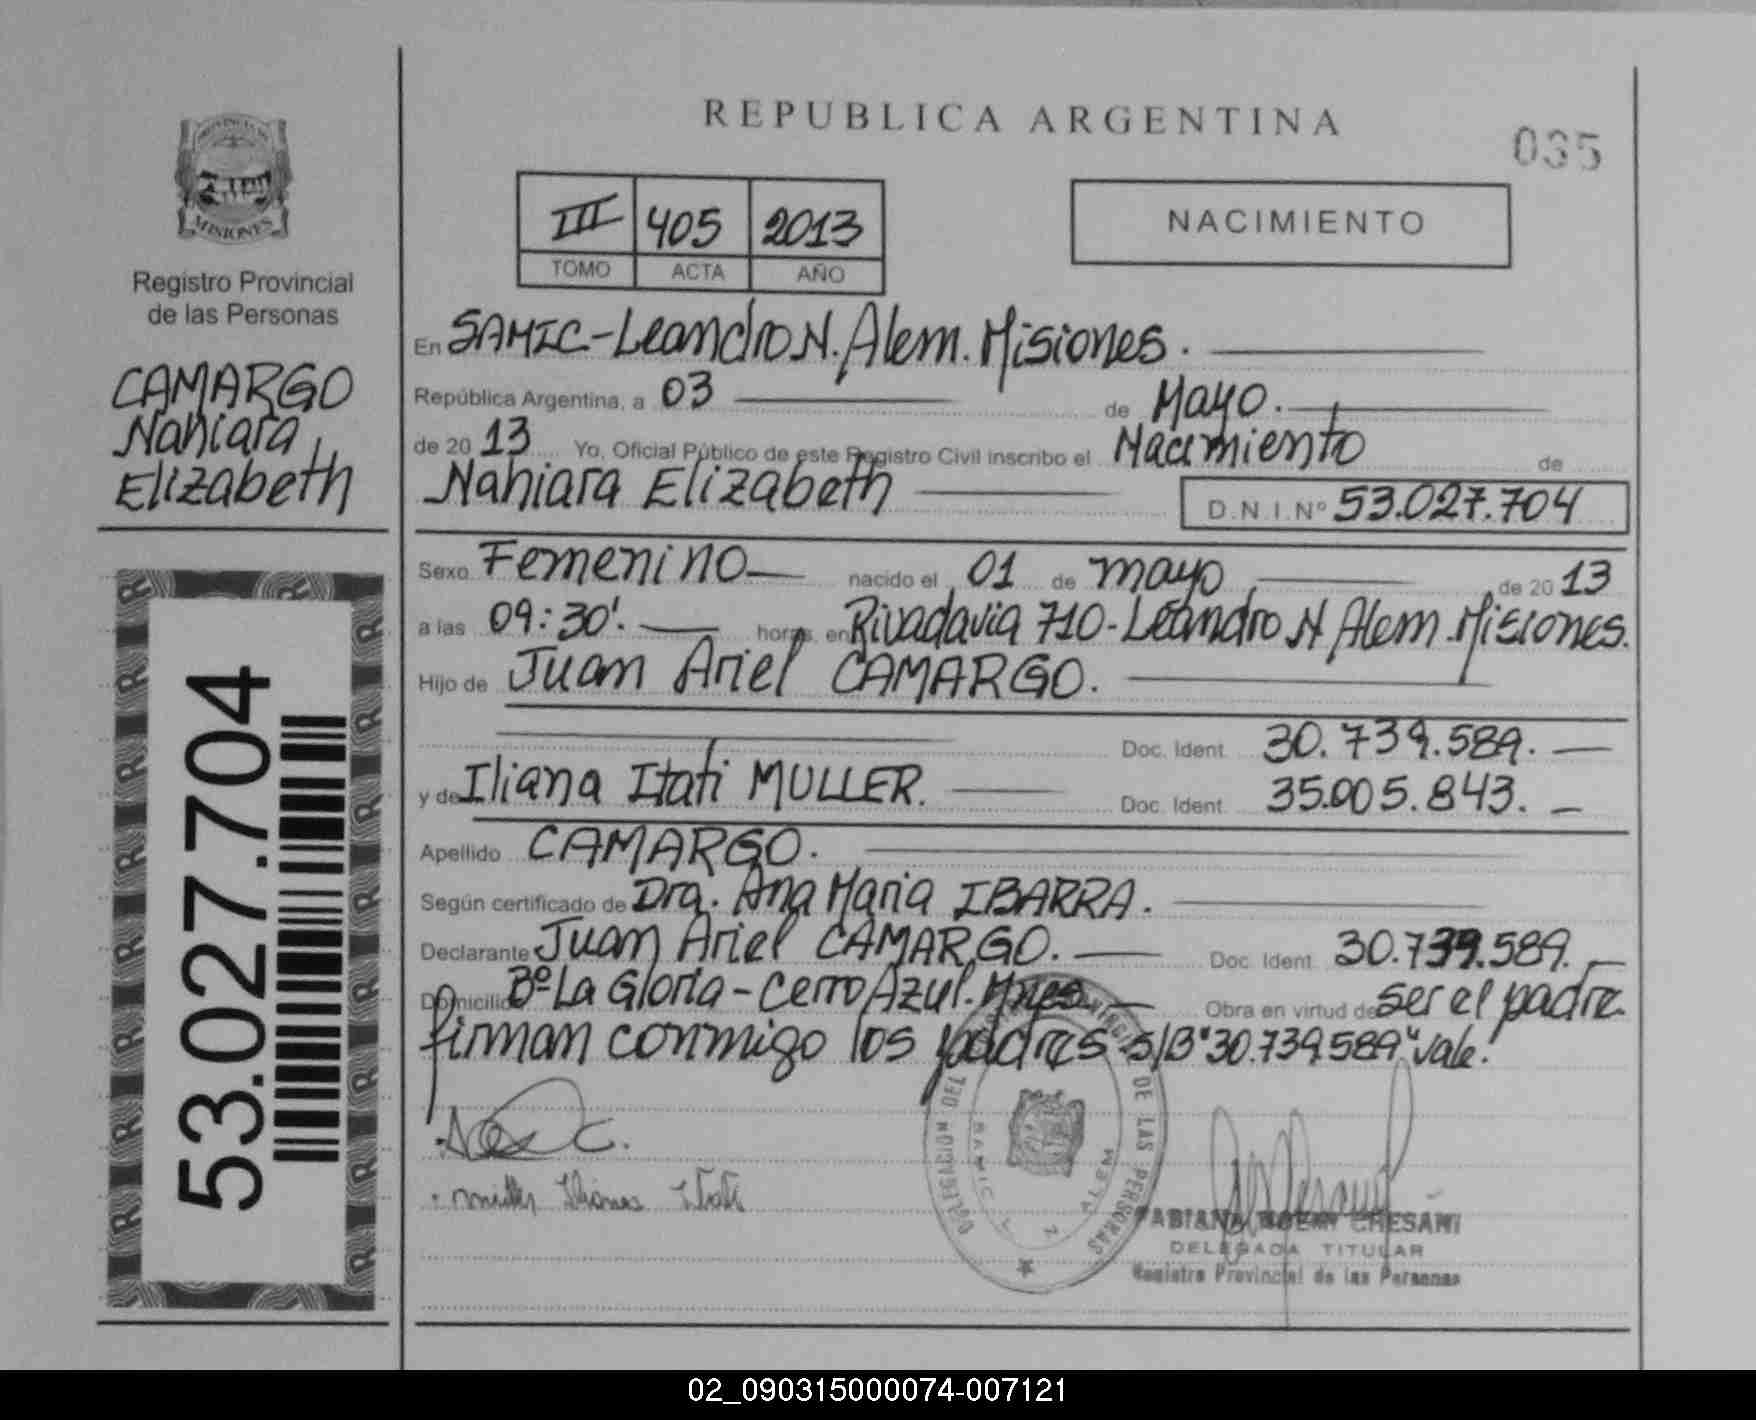 REPUBLICA ARGENTINA
035
PROVINCIA DE
MISIONES
Registro Provincial
de las Personas
CAMARGO
Nahiara
Elizabeth
53.027.704
III 405 2013
TOMO ACTA AÑO
NACIMIENTO
En SAMIC-Leandro N. Alem. Misiones.
República Argentina, a 03 de Mayo.
de 2013 Yo, Oficial Público de este Registro Civil inscribo el Nacimiento de
Nahiara Elizabeth D.N.I.Nº 53.027.704
Sexo Femenino nacido el 01 de mayo de 2013
a las 09:30'. horas, en Rivadavia 710-Leandro N Alem. Misiones.
Hijo de Juan Ariel CAMARGO.
Doc. Ident. 30.739.589.
y de Iliana Itati MULLER. Doc. Ident. 35.005.843.
Apellido CAMARGO.
Según certificado de Dra. Ana Maria IBARRA.
Declarante Juan Ariel CAMARGO. Doc. Ident. 30.739.589.
Domicilio Bº La Gloria - Cerro Azul. Mnes Obra en virtud de ser el padre.
firman conmigo los padres s/B "30.739.589" vale.
muller Iliana Itati
DELEGACION DEL DE LAS PERSONAS
SAMIC L N ALEM
FABIANA NOEMI CRESANI
DELEGADA TITULAR
Registro Provincial de las Personas
02_090315000074-007121